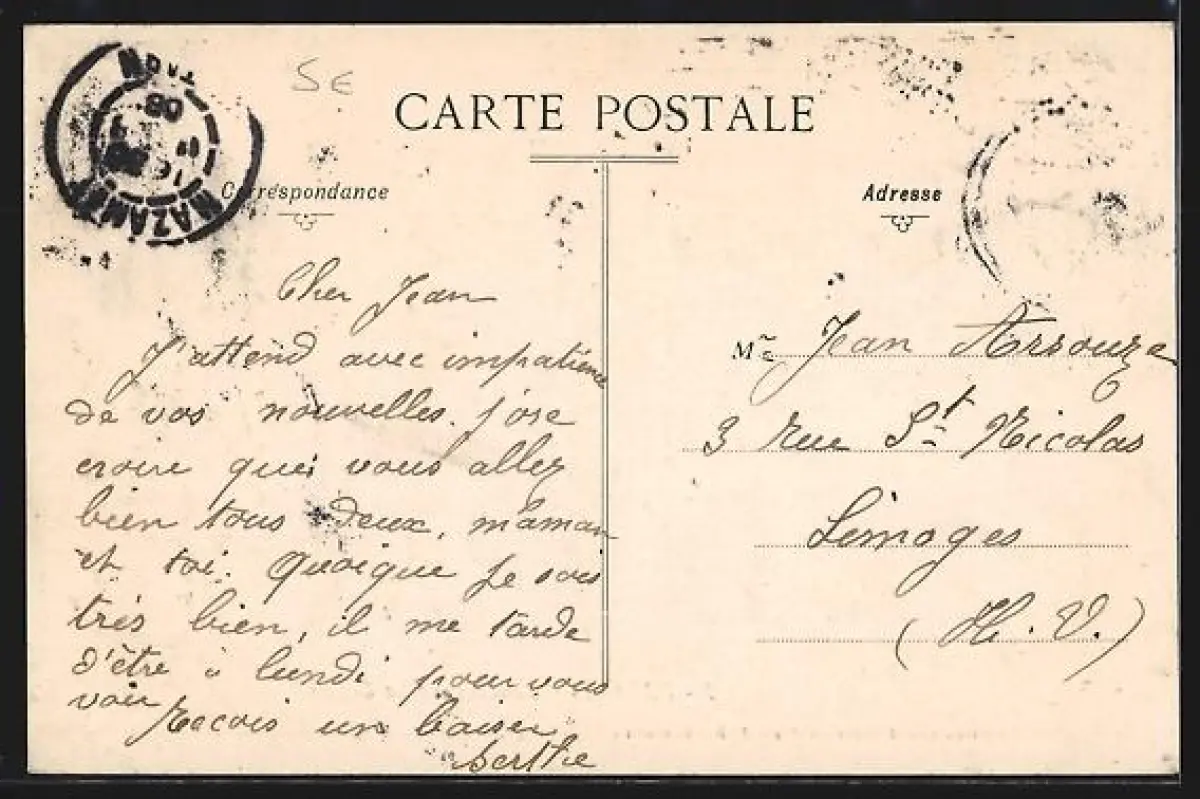 SE
CARTE POSTALE
Correspondance
Adresse
MAZAMET
TARN
08
Cher Jean
J'attend avec impatience
de vos nouvelles. J'ose
croire que vous allez
bien tous deux, maman
et toi. Quoique je sois
très bien, il me tarde
d'être à lundi pour vous
voir
Recois un baiser
Berthe
Mr Jean Arsouze
3 rue St Nicolas
Limoges
(H. V.)